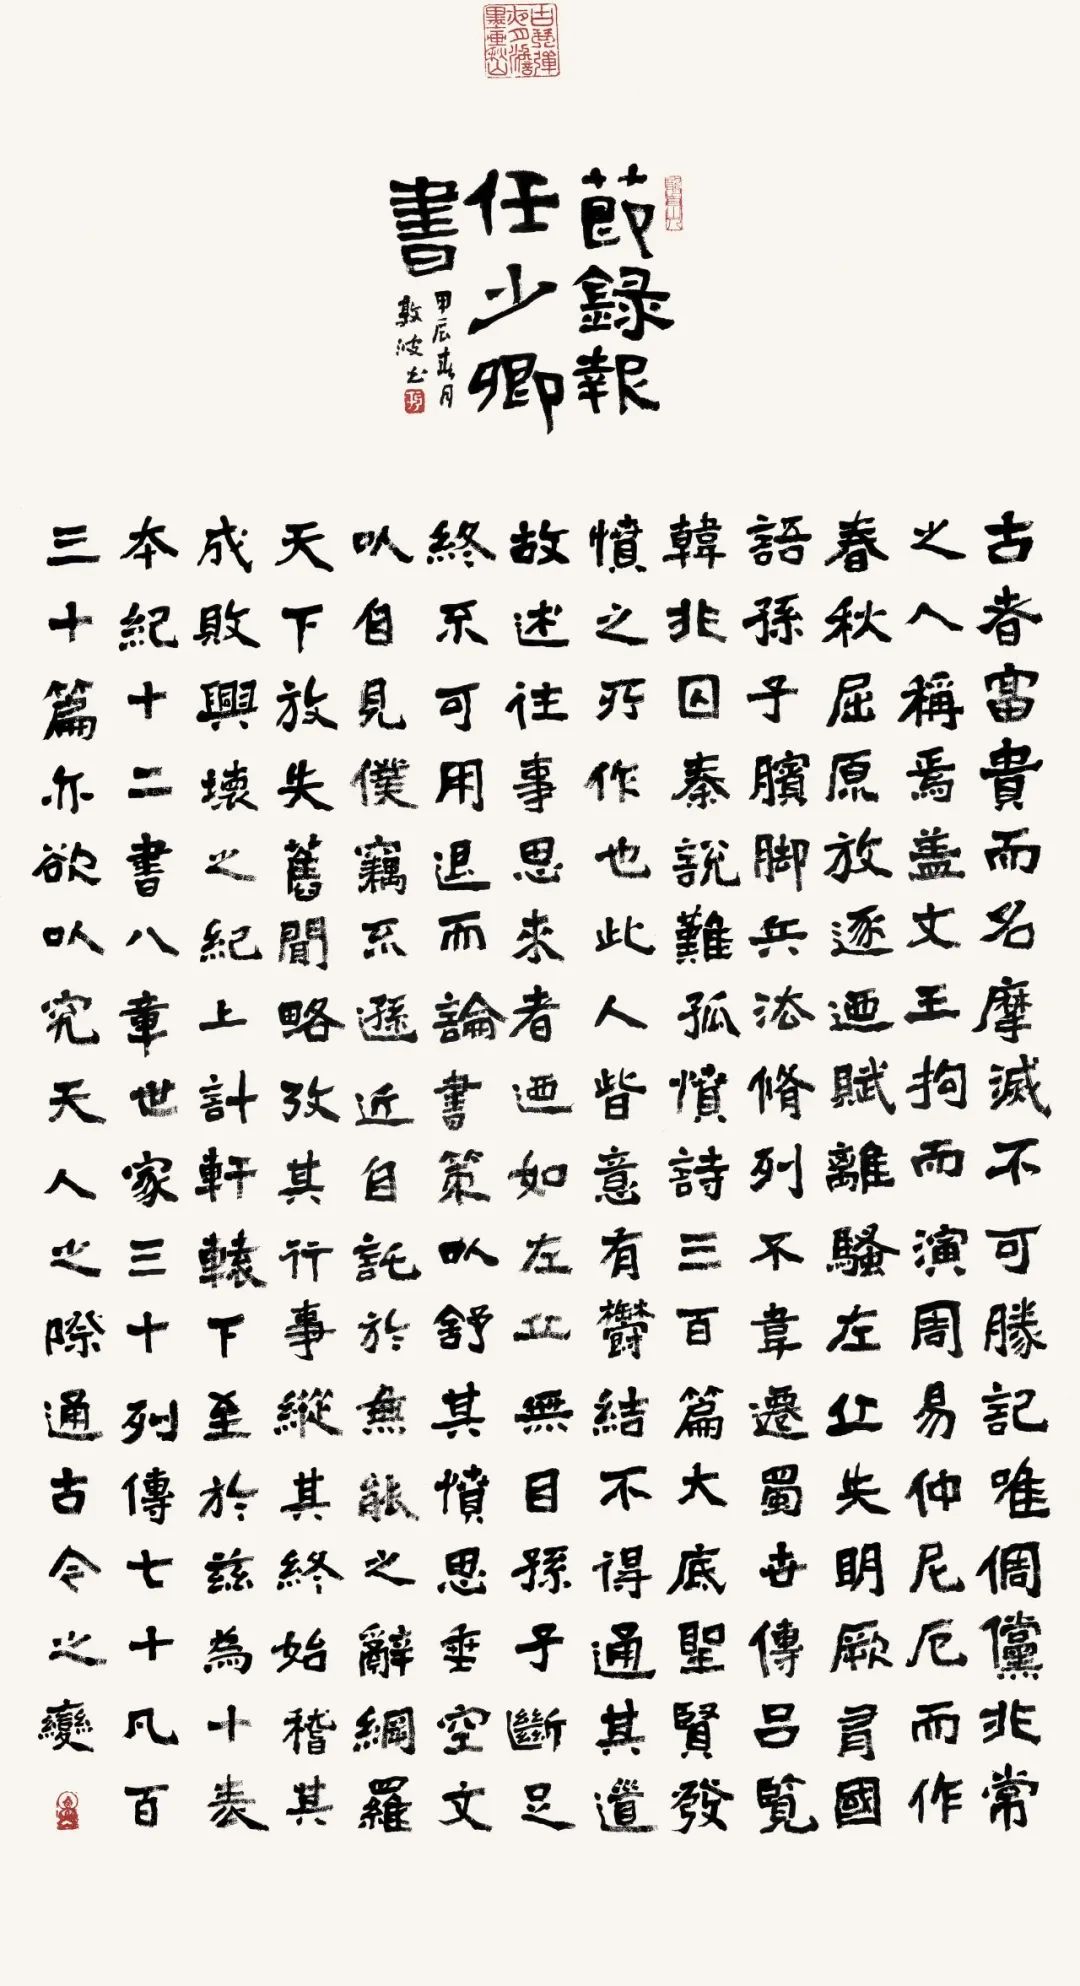 莭録報
任少卿
書
甲辰春月
敦波书
古者富貴而名摩滅不可勝記唯倜儻非常
之人稱焉盖文王拘而演周易仲尼厄而作
春秋屈原放逐迺賦離騷左丘失明厥有國
語孫子臏脚兵法脩列不韋遷蜀世傳吕覧
韓非囚秦説難孤憤詩三百篇大底聖賢發
憤之所作也此人皆意有欝結不得通其道
故述往事思来者迺如左丘無目孫子斷足
終不可用退而論書策以舒其憤思垂空文
以自見僕竊不遜近自託於無能之辭網羅
天下放失舊聞略攷其行事縱其終始稽其
成敗興壊之紀上計軒轅下至於兹為十表
本紀十二書八章世家三十列傳七十凡百
三十篇亦欲以究天人之際通古今之變